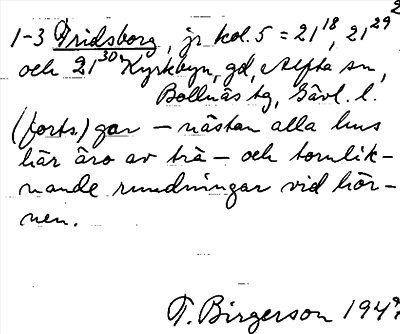 2
1-3 Fridsborg, jr kol. 5 = 21¹⁸, 21²⁹
och 21³⁰ Kyrkbyn, gd, Alfta sn,
Bollnäs tg, Gävl. l.
(forts.) gar – nästan alla hus
här äro av trä – och tornlik-
nande rundningar vid hör-
nen.
T. Birgerson 194